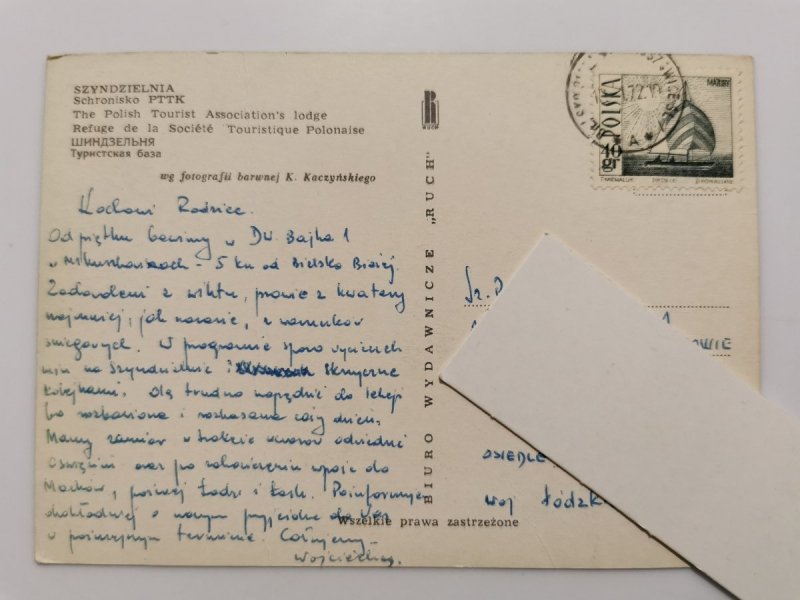 SZYNDZIELNIA
Schronisko PTTK
The Polish Tourist Association's lodge
Refuge de la Société Touristique Polonaise
ШИНДЗЕЛЬНЯ
Туристская база
wg fotografii barwnej K. Kaczyńskiego
Kochani Rodzice.
Od piątku bawimy w DW. Bajka 1
w Mikuszowicach - 5 km od Bielsko Białej
Zadowoleni z wiktu, prawie z kwatery
najmniej, jak na razie, z warunków
śniegowych. W programie sporo wycieczek
min na Szyndzielnię i Skrzyczne
kolejkami. Olę trudno napędzić do lekcji
bo rozbawiona i rozhasana cały dzień.
Mamy zamiar w trakcie wczasów odwiedzić
Oświęcim oraz po zakończeniu wpaść do
Maćków, później Łodzi i Łask. Poinformuję
dokładniej o naszym przyjeździe do Was
w późniejszym terminie. Całujemy-
Wojciechy.
BIURO WYDAWNICZE „RUCH"
RUCH
Wszelkie prawa zastrzeżone
POLSKA
40 gr
MAZURY
72.1
A
Sz. P
1
OWIE
OSIEDLE
woj Łódzk